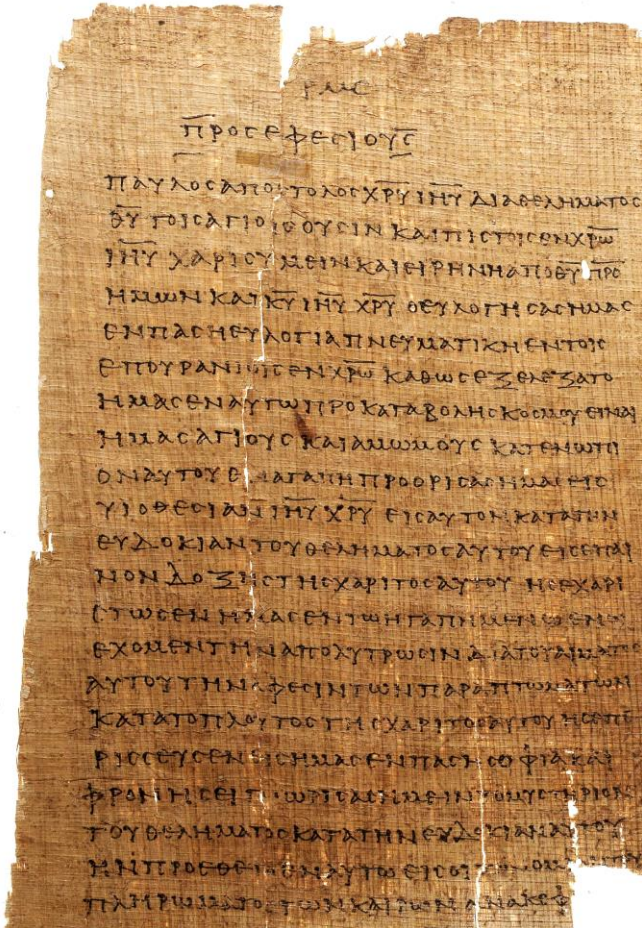 ΡΜϚ
Π̅ΡΟϹΕΦΕϹΙΟΥϹ̅
ΠΑΥΛΟϹΑΠΟϹΤΟΛΟϹΧ̅Ρ̅Υ̅ Ι̅Η̅Υ̅ ΔΙΑΘΕΛΗΜΑΤΟϹ
Θ̅Υ̅ ΤΟΙϹΑΓΙΟΙϹΟΥϹΙΝ ΚΑΙΠΙϹΤΟΙϹΕΝΧ̅Ρ̅Ω̅
Ι̅Η̅Υ̅ ΧΑΡΙϹΥΜΕΙΝΚΑΙΕΙΡΗΝΗΑΠΟΘ̅Υ̅ Π̅Ρ̅Ο̅
ΗΜΩΝ ΚΑΙΚ̅Υ̅ Ι̅Η̅Υ̅ Χ̅Ρ̅Υ̅ ΟΕΥΛΟΓΗϹΑϹΗΜΑϹ
ΕΝΠΑϹΗΕΥΛΟΓΙΑΠΝΕΥΜΑΤΙΚΗΕΝΤΟΙϹ
ΕΠΟΥΡΑΝΙΟΙϹΕΝΧ̅Ρ̅Ω̅ ΚΑΘΩϹΕΞΕΛΕΞΑΤΟ
ΗΜΑϹΕΝΑΥΤΩΠΡΟΚΑΤΑΒΟΛΗϹΚΟϹΜΟΥΕΙΝΑΙ
ΗΜΑϹΑΓΙΟΥϹ ΚΑΙΑΜΩΜΟΥϹ ΚΑΤΕΝΩΠΙ
ΟΝΑΥΤΟΥΕΝΑΓΑΠΗΠΡΟΟΡΙϹΑϹΗΜΑϹΕΙϹ
ΥΙΟΘΕϹΙΑΝΙ̅Η̅Υ̅ Χ̅Ρ̅Υ̅ ΕΙϹΑΥΤΟΝΚΑΤΑΤΗΝ
ΕΥΔΟΚΙΑΝΤΟΥΘΕΛΗΜΑΤΟϹΑΥΤΟΥΕΙϹΕΠΑΙ
ΝΟΝΔΟΞΗϹΤΗϹΧΑΡΙΤΟϹΑΥΤΟΥ ΗϹΕΧΑΡΙ
ϹΤΩϹΕΝΗΜΑϹΕΝΤΩΗΓΑΠΗΜΕΝΩΕΝΩ
ΕΧΟΜΕΝΤΗΝΑΠΟΛΥΤΡΩϹΙΝΔΙΑΤΟΥΑΙΜΑΤΟϹ
ΑΥΤΟΥΤΗΝΑΦΕϹΙΝΤΩΝΠΑΡΑΠΤΩΜΑΤΩΝ
ΚΑΤΑΤΟΠΛΟΥΤΟϹΤΗϹΧΑΡΙΤΟϹΑΥΤΟΥΗϹΕΠΕ
ΡΙϹϹΕΥϹΕΝΕΙϹΗΜΑϹΕΝΠΑϹΗϹΟΦΙΑΚΑΙ
ΦΡΟΝΗϹΕΙΓΝΩΡΙϹΑϹΗΜΕΙΝΤΟΜΥϹΤΗΡΙΟΝ
ΤΟΥΘΕΛΗΜΑΤΟϹΚΑΤΑΤΗΝΕΥΔΟΚΙΑΝΑΥΤΟΥ
ΗΝΠΡΟΕΘΕΤΟΕΝΑΥΤΩΕΙϹΟΙΚΟΝΟΜΙΑΝΤΟΥ
ΠΛΗΡΩΜΑΤΟϹΤΩΝΚΑΙΡΩΝΑΝΑΚΕΦ